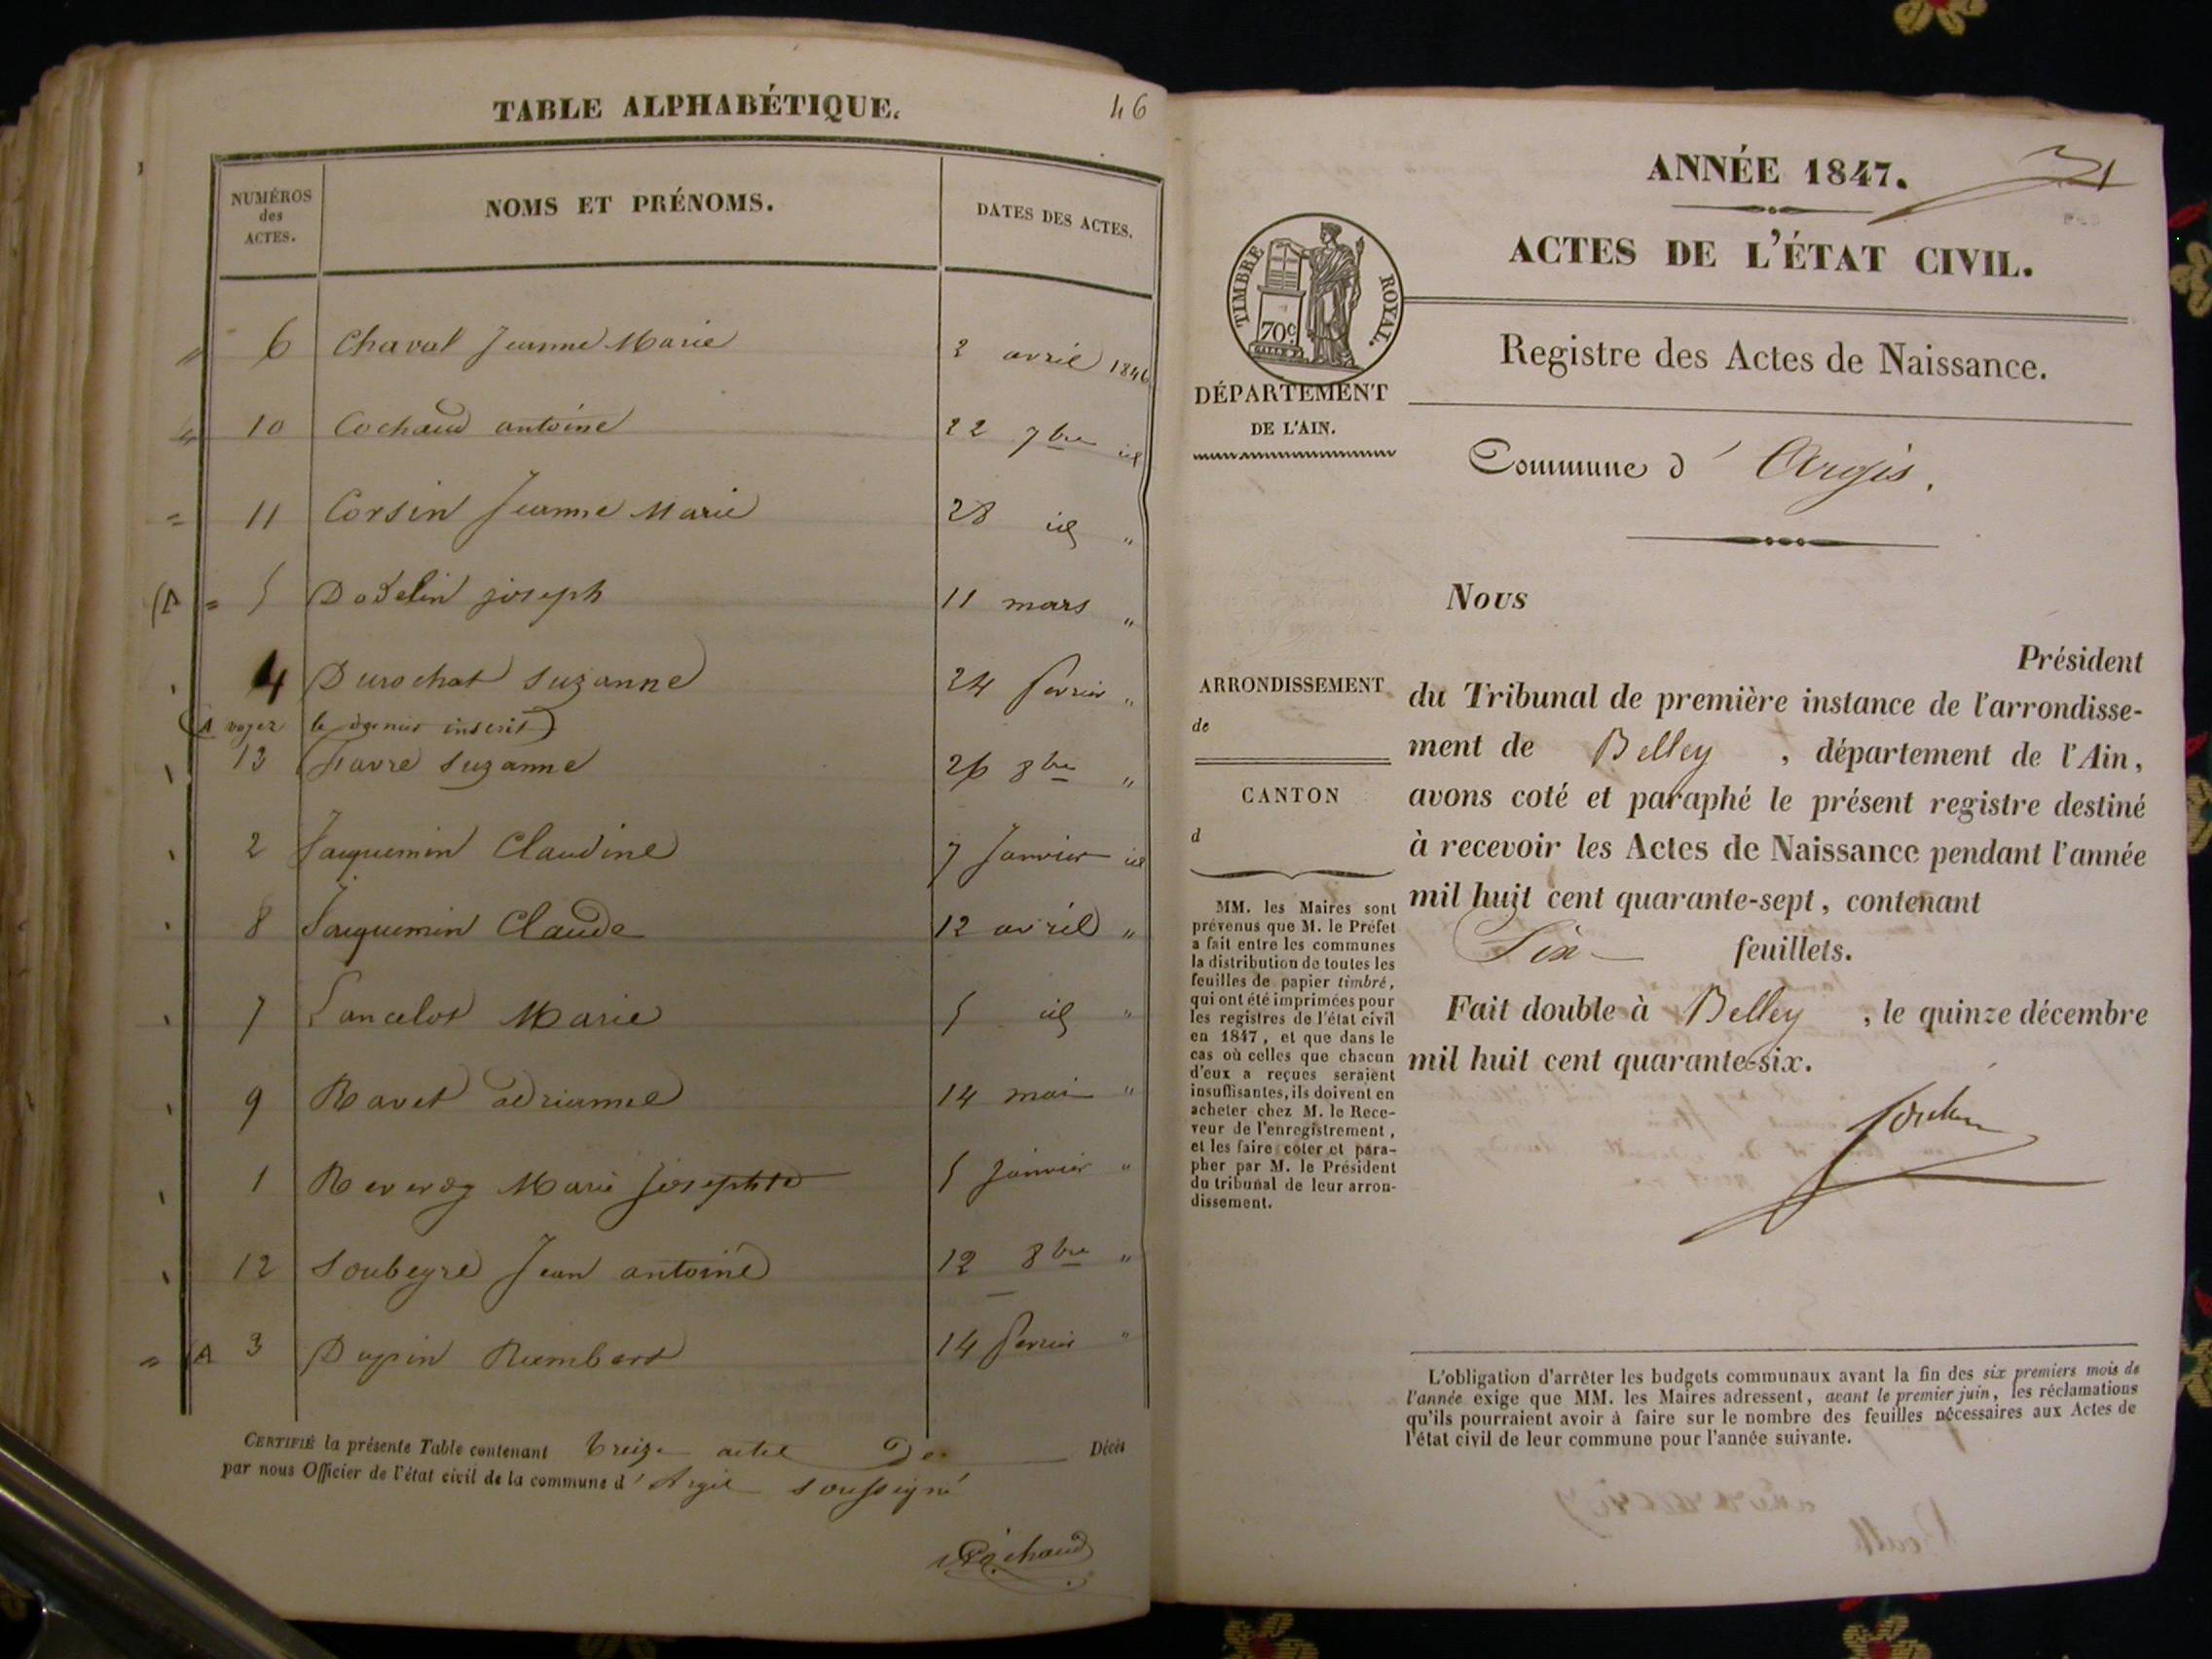 TABLE ALPHABÉTIQUE. 46
NUMÉROS des ACTES. NOMS ET PRÉNOMS. DATES DES ACTES.
6 Chaval Jeanne Marie 2 avril 1846
10 Cochaud antoine 22 7bre id
11 Corsin Jeanne Marie 28 id "
(A = 5 Dodelin joseph 11 mars "
4 Durochat Suzanne 24 fevrier "
(A voyez le dernier inscrit)
13 Favre Suzanne 26 8bre "
2 Jacquemin Claudine 7 Janvier id
8 Jacquemin Claude 12 avril "
7 Lancelot Marie 5 id "
9 Ravet adrianne 14 mai "
1 Reverdy Marie Josephte 5 Janvier "
12 Soubeyre Jean antoine 12 8bre "
= (A 3 Dupin Rambert 14 fevrier "
CERTIFIÉ la présente Table contenant treize actes De Décès
par nous Officier de l'état civil de la commune d'Argis soussigné
ANNÉE 1847. 31
ACTES DE L'ÉTAT CIVIL.
TIMBRE ROYAL.
70c
Registre des Actes de Naissance.
DÉPARTEMENT
DE L'AIN.
Commune d'Argis.
Nous
Président
ARRONDISSEMENT
de
CANTON
d
du Tribunal de première instance de l'arrondisse-
ment de Belley, département de l'Ain,
avons coté et paraphé le présent registre destiné
à recevoir les Actes de Naissance pendant l'année
mil huit cent quarante-sept, contenant
Six feuillets.
Fait double à Belley, le quinze décembre
mil huit cent quarante-six.
MM. les Maires sont
prévenus que M. le Préfet
a fait entre les communes
la distribution de toutes les
feuilles de papier timbré,
qui ont été imprimées pour
les registres de l'état civil
en 1847, et que dans le
cas où celles que chacun
d'eux a reçues seraient
insuffisantes, ils doivent en
acheter chez M. le Rece-
veur de l'enregistrement,
et les faire coter et para-
pher par M. le Président
du tribunal de leur arron-
dissement.
L'obligation d'arrêter les budgets communaux avant la fin des six premiers mois de
l'année exige que MM. les Maires adressent, avant le premier juin, les réclamations
qu'ils pourraient avoir à faire sur le nombre des feuilles nécessaires aux Actes de
l'état civil de leur commune pour l'année suivante.